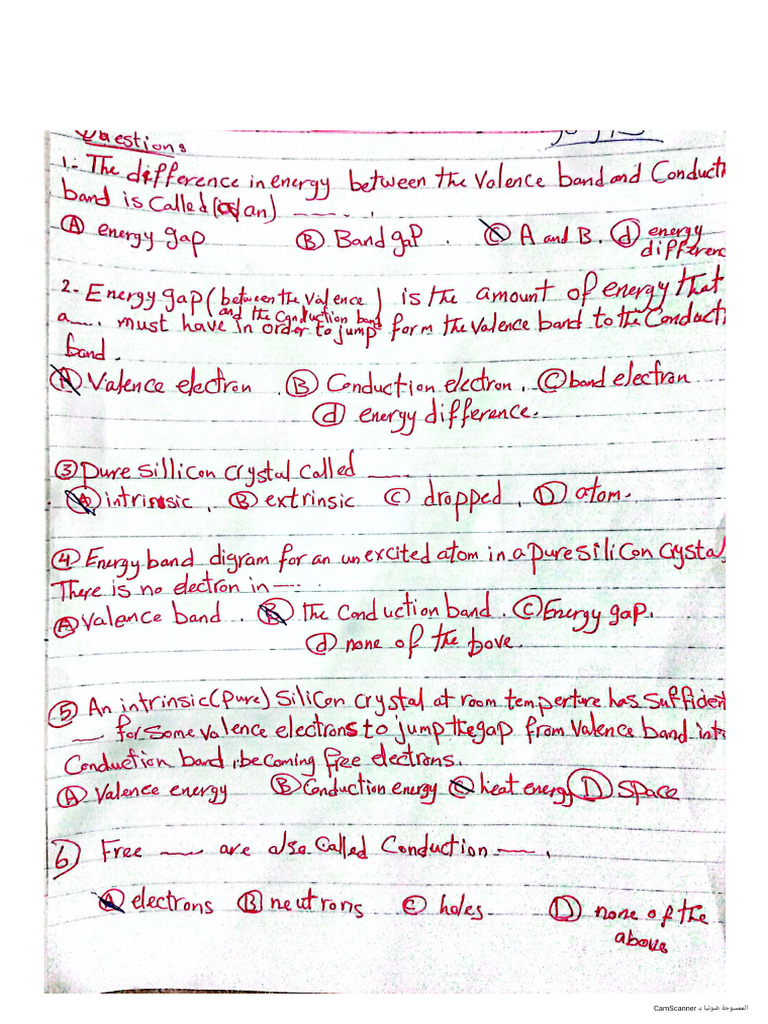 Questions
1.- The difference in energy between the Valence band and Conducti
band is called (as/an) ----- .
A energy gap B Band gap . C A and B . d energy
differenc
2- Energy gap ( between the Valence ) is the amount of energy that
and the Conduction band
a---. must have in order to jump form the Valence band to the Conducti
band .
A Valence electron . B Conduction electron . C band electron
d energy difference .
3 pure sillicon crystal called ----.
A intrinsic , B extrinsic C dropped , D atom .
4 Energy band digram for an unexcited atom in a pure silicon crystal
There is no electron in ---.
A valance band . B the conduction band . C Energy gap .
d none of the bove .
5 An intrinsic (pure) silicon crystal at room temperture has sufficient
--- for some valence electrons to jump the gap from valence band into
Conduction band , becoming free electrons .
A Valence energy B Conduction energy C heat energy D space
6 Free --- are also Called Conduction --- .
A electrons B neutrons C holes D none of the
above
الممسوحة ضوئيا بـ CamScanner